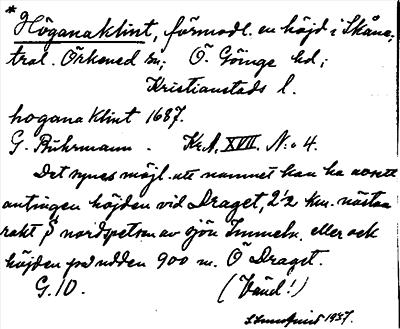 * Höganaklint, förmodl. en höjd i Skåne,
tral. Örkened sn; Ö. Göinge hd;
Kristianstads l.
hogana Klint 1687.
G. Buhrmann. Kr.A. XVII. N:o 4.
Det synes möjl. att namnet kan ha avsett
antingen höjden vid Draget, 2 1/2 km. nästan
rakt S nordspetsen av sjön Immeln, eller ock
höjden på udden 900 m. Ö Draget.
G. 10. (Vänd!)
1937.